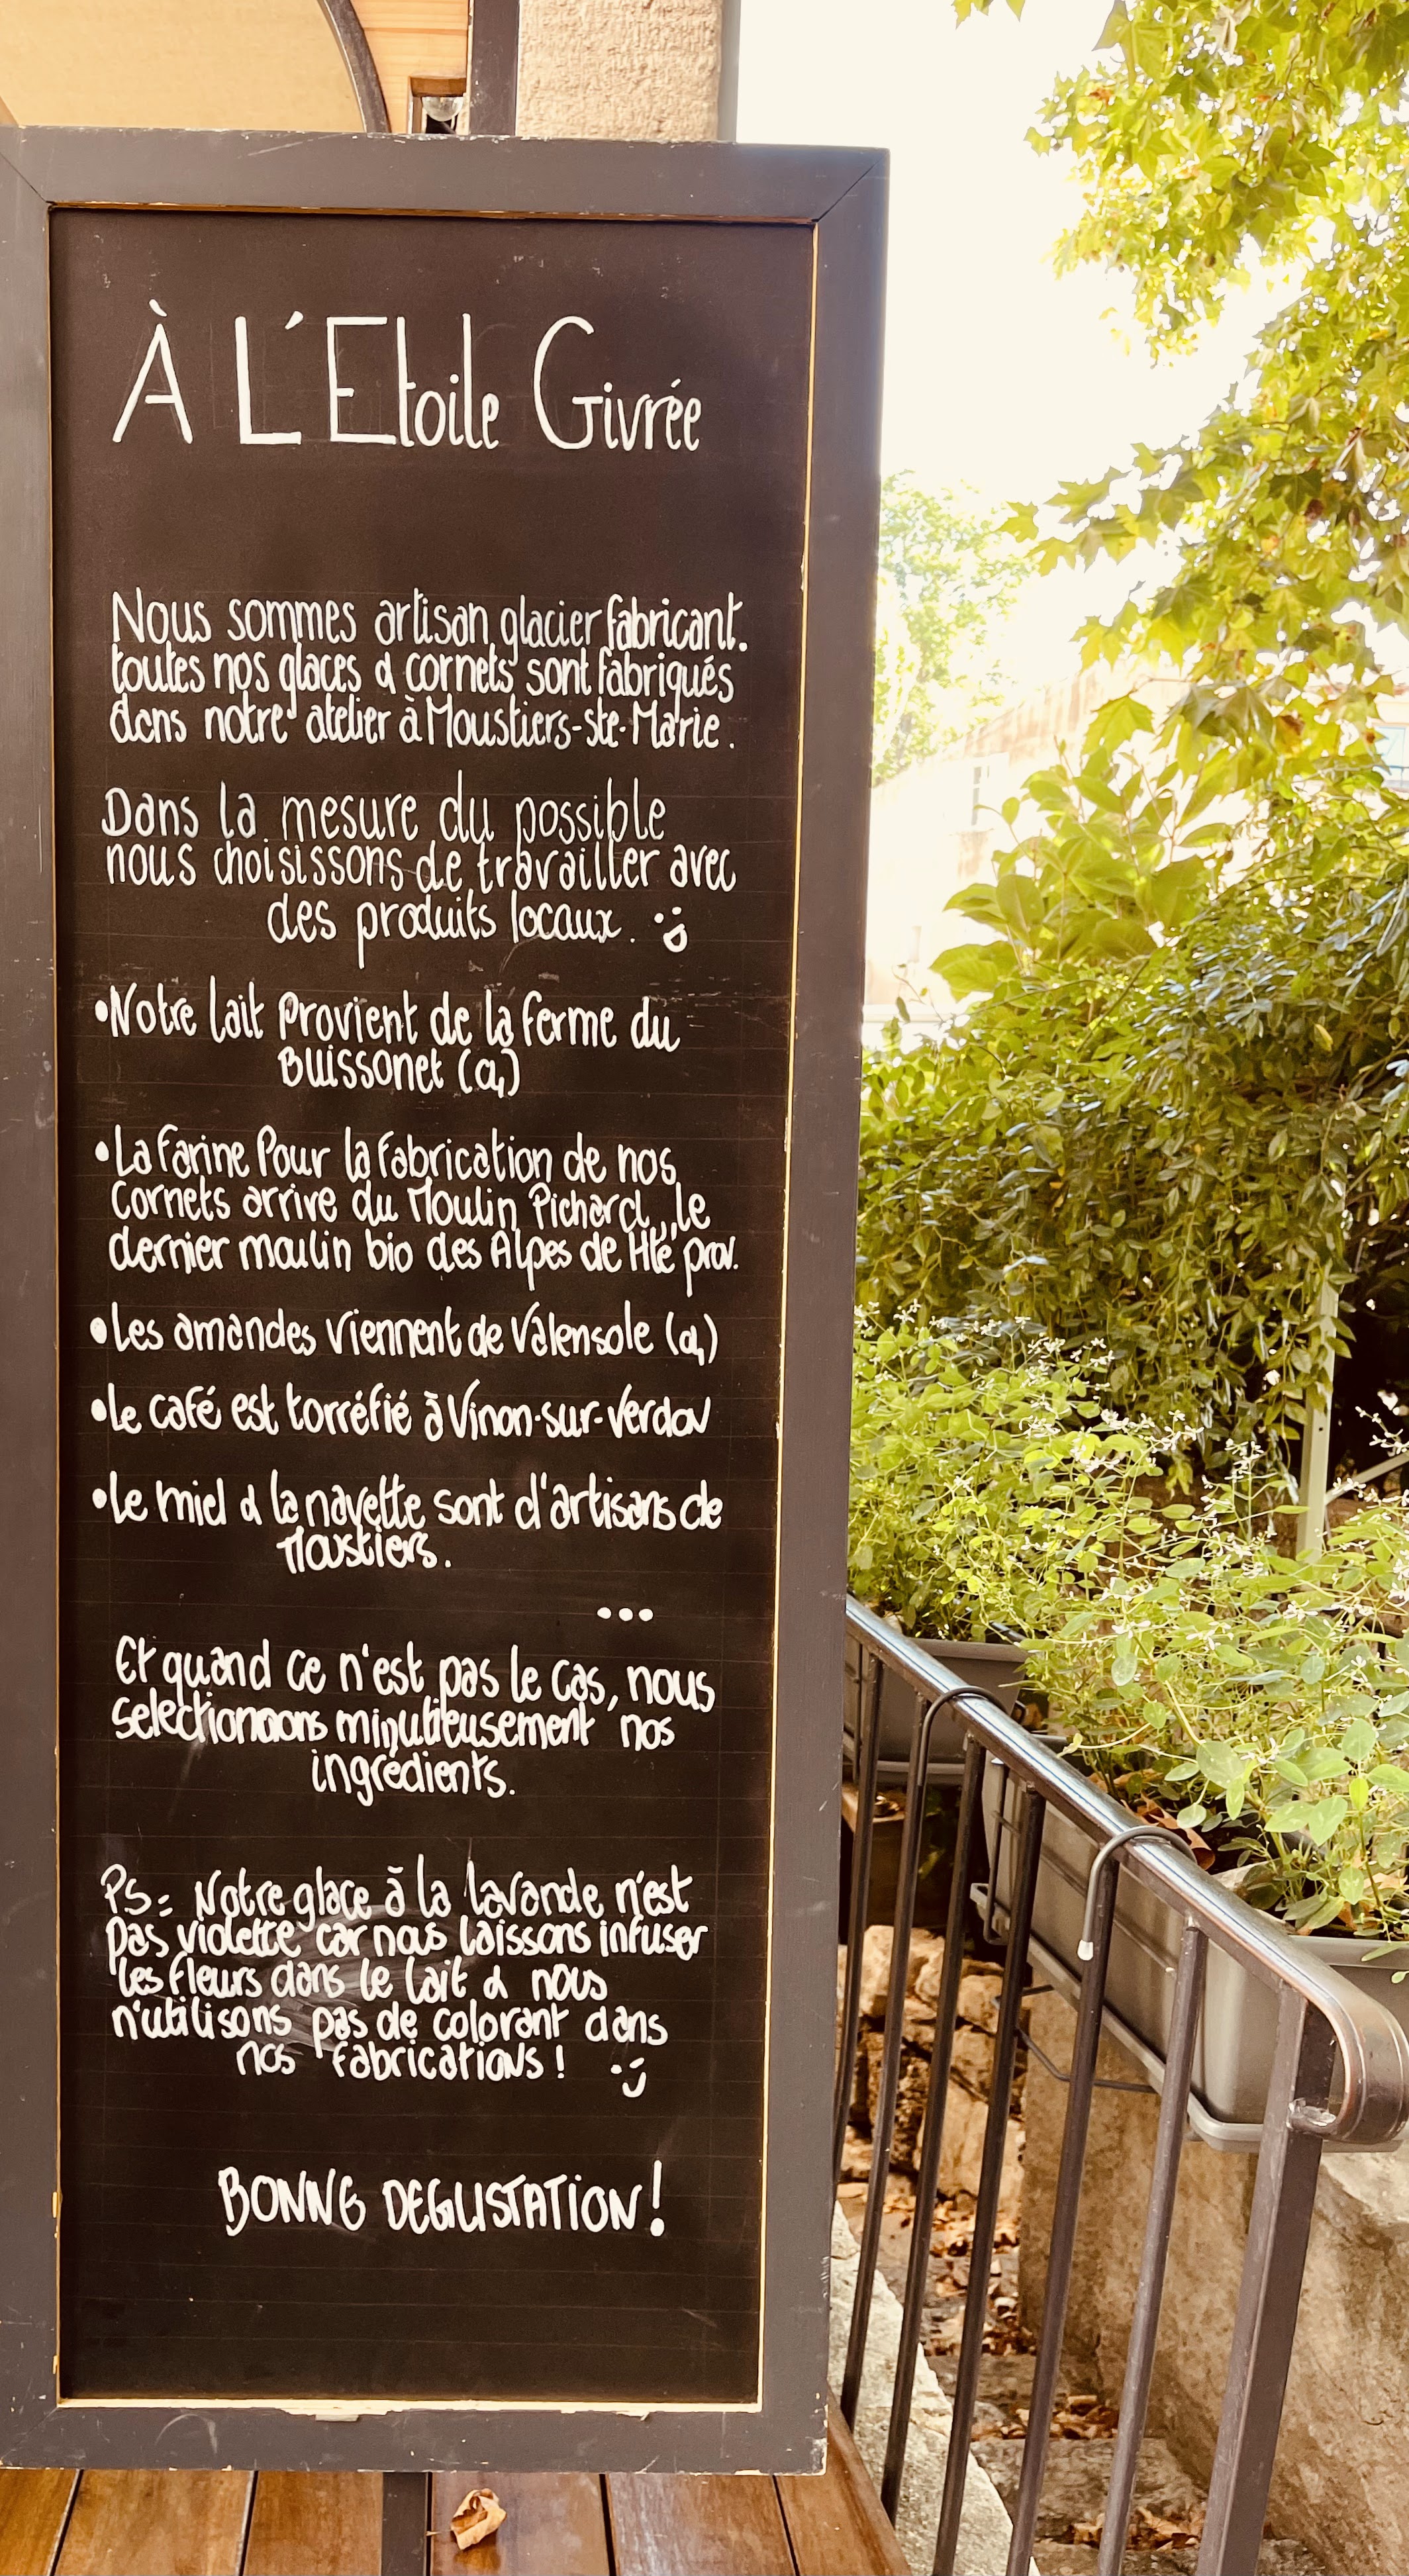 À L'Etoile Givrée
Nous sommes artisan glacier fabricant.
toutes nos glaces & cornets sont fabriqués
dans notre atelier à Moustiers-ste-Marie.
Dans la mesure du possible
nous choisissons de travailler avec
des produits locaux. :)
•Notre lait provient de la ferme du
Buissonet (04)
•La farine pour la fabrication de nos
cornets arrive du Moulin Pichard, le
dernier moulin bio des Alpes de Hte prov.
•Les amandes viennent de Valensole (04)
•Le café est torréfié à Vinon-sur-Verdon
•Le miel & la navette sont d'artisans de
Moustiers.
...
Et quand ce n'est pas le cas, nous
selectionnons minutieusement nos
ingrédients.
PS: Notre glace à la lavande n'est
pas violette car nous laissons infuser
les fleurs dans le lait & nous
n'utilisons pas de colorant dans
nos fabrications ! :)
BONNE DEGUSTATION !